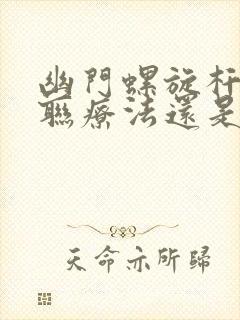 幽門螺旋杆
聯療法還是
天命亦所歸